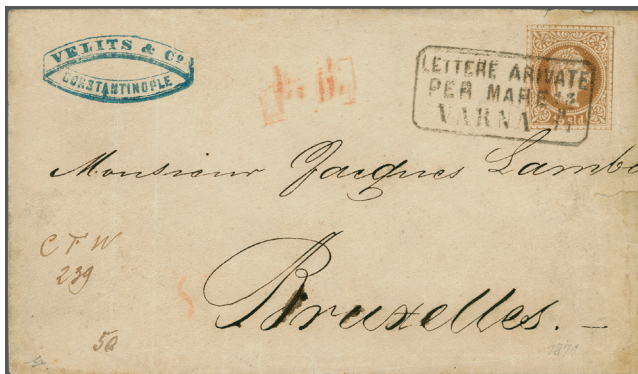 VELITS & Co
CONSTANTINOPLE
P.D.
LETTERE ARIVATE
PER MARE
VARNA
Monsieur Jacques Lamb
Bruxelles. –
C F W
239
50
1871